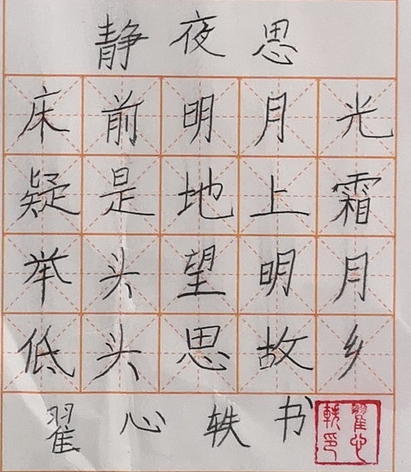 静夜思
床前明月光
疑是地上霜
举头望明月
低头思故乡
翟心轶书
翟心轶印